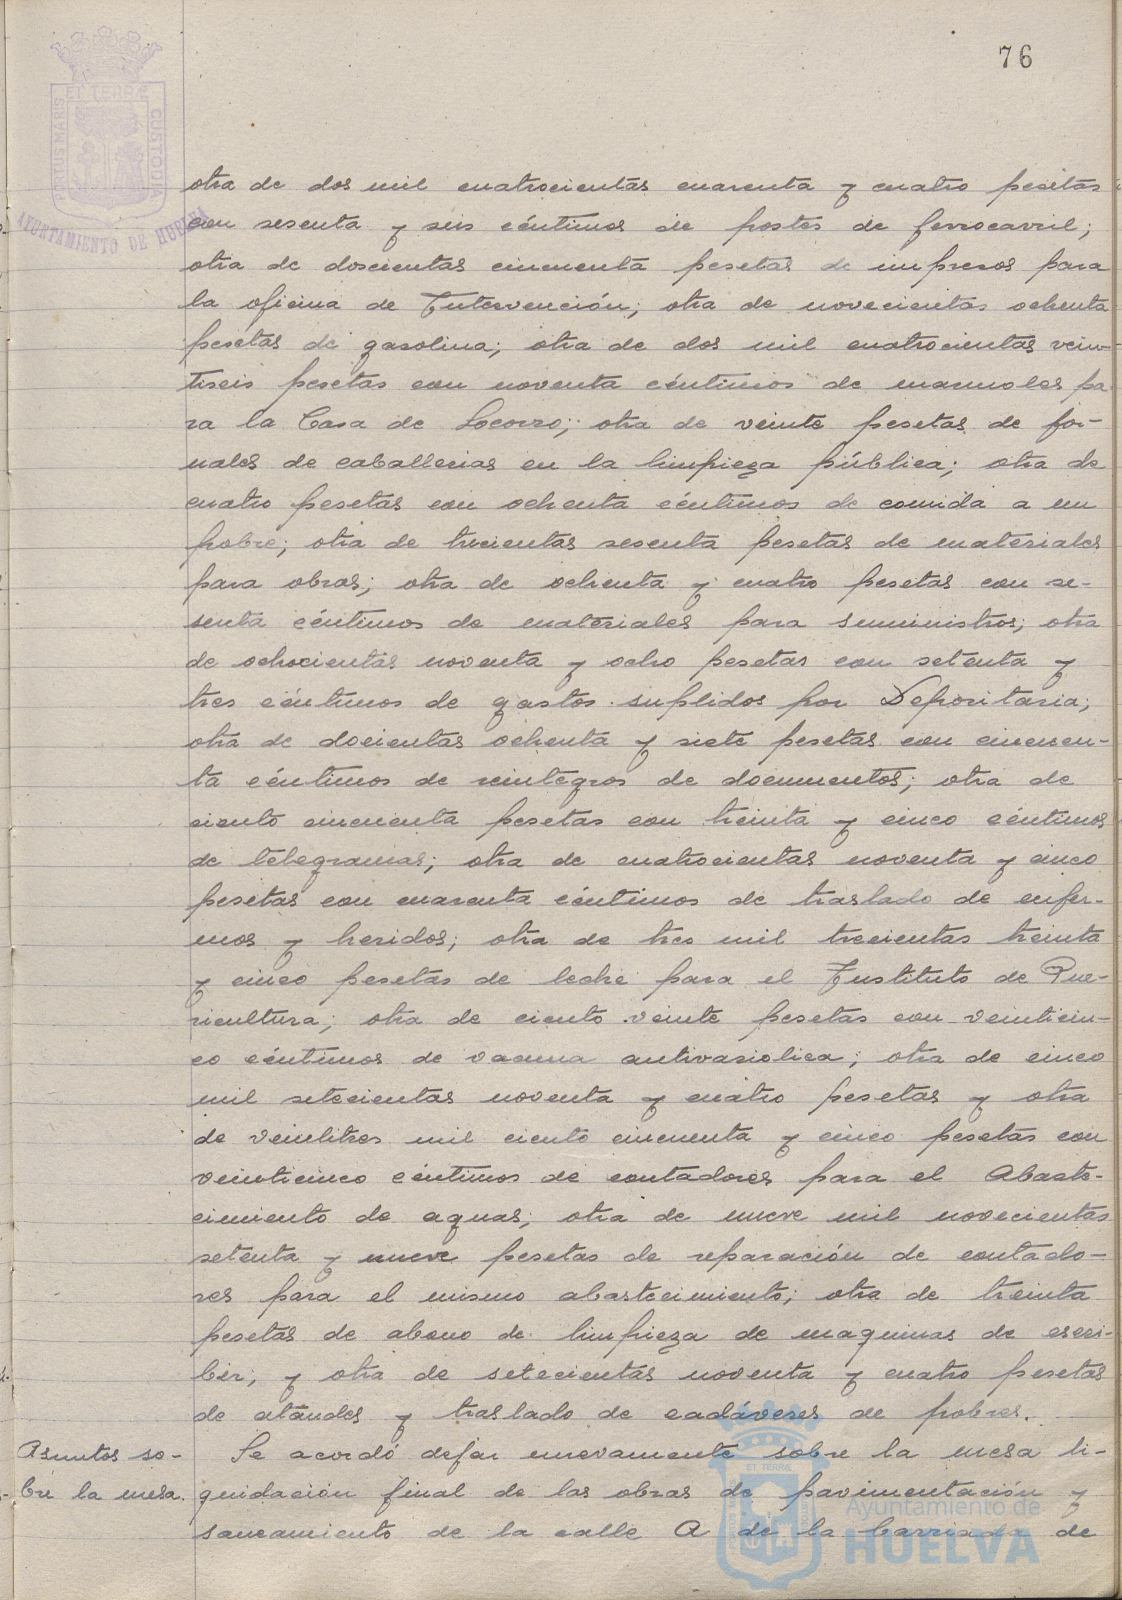 76
PORTUS MARIS ET TERRÆ CUSTODIA
AYUNTAMIENTO DE HUELVA
otra de dos mil cuatrocientas cuarenta y cuatro pesetas
con sesenta y seis céntimos de postes de ferrocarril;
otra de doscientas cincuenta pesetas de impresos para
la oficina de Intervención; otra de novecientas ochenta
pesetas de gasolina; otra de dos mil cuatrocientas vein-
tiseis pesetas con noventa céntimos de marmoles pa
ra la Casa de Socorro; otra de veinte pesetas de jor-
nales de caballerias en la limpieza pública; otra de
cuatro pesetas con ochenta céntimos de comida a un
pobre; otra de trecientas sesenta pesetas de materiales
para obras; otra de ochenta y cuatro pesetas con se-
senta céntimos de materiales para suministros; otra
de ochocientas noventa y ocho pesetas con setenta y
tres céntimos de gastos suplidos por Depositaria;
otra de docientas ochenta y siete pesetas con cincuen-
ta céntimos de reintegros de documentos; otra de
ciento cincuenta pesetas con treinta y cinco céntimos
de telegramas; otra de cuatrocientas noventa y cinco
pesetas con cuarenta céntimos de traslado de enfer-
mos y heridos; otra de tres mil trecientas treinta
y cinco pesetas de leche para el Instituto de Pue-
ricultura; otra de ciento veinte pesetas con veinticin-
co céntimos de vacuna antivariolica; otra de cinco
mil setecientas noventa y cuatro pesetas y otra
de veintitres mil ciento cincuenta y cinco pesetas con
veinticinco céntimos de contadores para el Abaste-
cimiento de aguas; otra de nueve mil novecientas
setenta y nueve pesetas de reparación de contado-
res para el mismo abastecimiento; otra de treinta
pesetas de abono de limpieza de maquinas de escri-
bir; y otra de setecientas noventa y cuatro pesetas
de ataudes y traslado de cadáveres de pobres.
Asuntos so-
bre la mesa.
Se acordó dejar nuevamente sobre la mesa li-
quidación final de las obras de pavimentación y
saneamiento de la calle A de la barriada de
ET TERRÆ
Ayuntamiento de
HUELVA